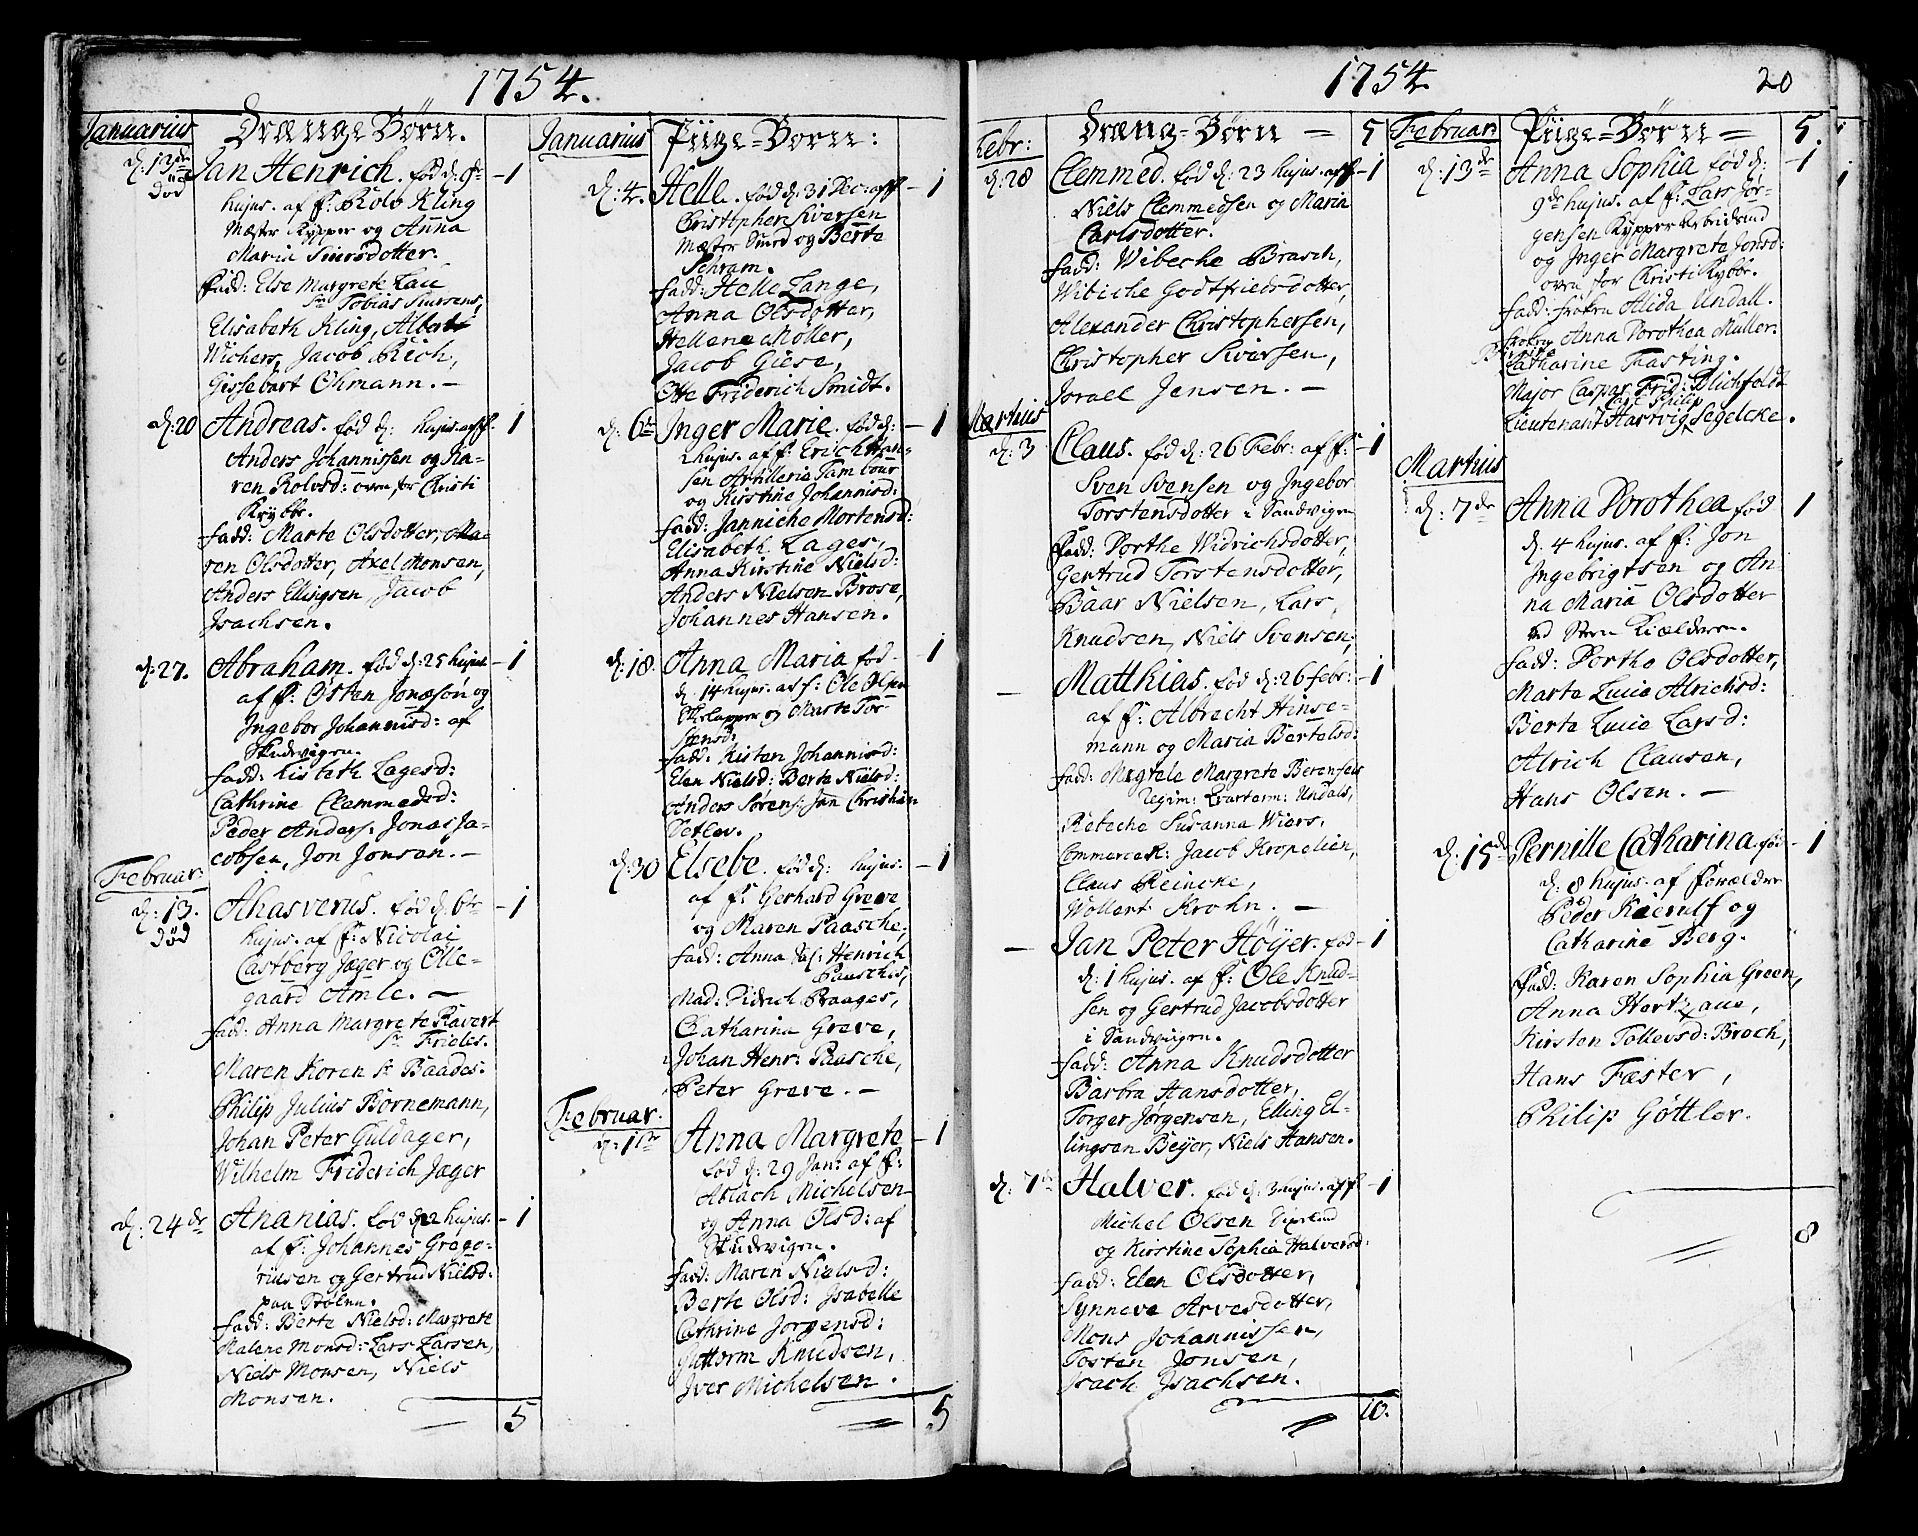 1754.
Januarius
Drænge Børn.
d. 13de
død
Jan Henrich. fød d. 9de - 1
hujus. af F: Rolv Kling
Mæster Kypper og Anna
Maria Siursdotter.
Fadd: Else Margrete Lau
Sr Tobias Siursens,
Elisabeth Kling, Albert
Wichers, Jacob Rich,
Gissebart Ohmann. -
d: 20 Andreas. fød d: hujus. af F. 1
Anders Johannissen og Ka-
ren Rolvsd: oven for Christi
Krybbe.
Fadd: Marte Olsdotter, Ma-
ren Olsdotter, Axel Monsen,
Anders Ellingsen, Jacob
Isachsen.
d: 27. Abraham. fød d: 25 hujus. - 1
af F: Østen Jonæsøn og
Ingebor Johannisd: af
Skudevigen.
Fadd: Lisbeth Lagesd:
Cathrine Clemmedsd:
Peder Anders: Jonas Ja-
cobsen, Jon Jonsen. -
Februar:
d: 13.
død
Ahasverus. fød d. 6te - 1
hujus. af F: Nicolai
Castberg Jæger og Olle-
gaard Amle. -
Fadd: Anna Margrete Ravert
Sr Frieles.
Maren Koren Sr Baades.
Philip Julius Bornemann,
Johan Peter Guldager,
Wilhelm Friderich Jæger
d: 24de Ananias. fød d. 22 hujus. - 1
af F: Johannes Grego-
riusen og Gertrud Nielsd:
paa Stølen.
Fadd: Berte Nielsd: Margrete
Malene Monsd: Lars Larsen,
Niels Monsen, Niels
Monsen.
5
Januarius
Piige-Børn:
d: 4. Helle. fød d: 31 Dec: af F. - 1
Christopher Siversen
Mæster Smed og Berte
Schram.
Fadd: Helle Lange,
Anna Olsdotter,
Hellene Møller,
Jacob Giese,
Otte Friderich Smidt.
d: 6te Inger Marie. fød d: - 1
2 hujus. af F: Erich Han-
sen Artillerie Tambour
og Kirstine Johannisd:
Fadd: Janniche Mortensd:
Elisabeth Lages,
Anna Kirstine Nielsd:
Anders Nielsen Brose,
Johannes Hansen.
d: 18. Anna Maria fød - 1
d. 14 hujus. af F: Ole Olsen
og Marte Tor-
stensd:
Fadd: Kisten Johannisd:
Elen Nielsd: Berte Nielsd:
Anders Sørens: Jan Christian
Detlev.
d: 30 Elsebe. fød d: hujus. - 1
af F: Gerhard Greve
og Maren Paasche.
Fadd: Anna Sal: Henrich
Paasches,
Mad: Didrich Praages,
Chatharina Greve,
Johan Henr: Paasche,
Peter Greve. -
Februar:
d: 1te Anna Margrete - 1
fød d: 29 Jan: af F:
Ablach Michelsen
og Anna Olsd: af
Skudevigen.
Fadd: Maren Nielsd:
Berte Olsd: Isabelle
Cathrine Jørgensd:
Guttorm Knudsen,
Iver Michelsen.
5
1754
20
Febr:
Dræng-Børn = 5
d: 28 Clemmed. fød d: 23 hujus. af F - 1
Niels Clemmedsen og Maria
Carlsdotter.
Fadd: Wibeche Brasch,
Wibiche Godtfriedsdotter,
Alexander Christophersen,
Christopher Siversen,
Israel Jensen. -
Martius
d: 3 Claus. fød d: 26 Febr: af F: - 1
Sven Svensen og Ingebor
Torstensdotter i Sandvigen
Fadd: Dorthe Widrichsdotter,
Gertrud Torstensdotter,
Baar Nielsen, Lars,
Knudsen, Niels Svensen,
- Matthias. fød d: 26 Febr: - 1
af F: Albrecht Hinse-
mann og Maria Bertelsd:
Fadd: Margrete Berensens
Regim: Qvarterm: Undals,
Rebeche Susanna Wiers,
Commerces: Jacob Kropelien,
Claus Reincke,
Wollert Krohn. -
- Jan Peter Höyer. fød - 1
d: 1 hujus. af F: Ole Knud-
sen og Gertrud Jacobsdotter
i Sandvigen.
Fadd: Anna Knudsdotter
Barbra Hansdotter,
Torger Jørgensen, Elling El-
lingsen Beyer, Niels Hansen.
d: 7de Halver. fød d. 3 hujus. af F - 1
Michel Olsen
og Kirstine Sophia Halversd:
Fadd: Elen Olsdotter,
Synneve Arvesdotter,
Mons Johannissen,
Tosten Jonsen,
Isach Isachsen.
10.
Februar:
Piige-Børn = 5.
d: 13de Anna Sophia fød d: - 1
9de hujus. af F: Lars Jør-
gensen Kypper
og Inger Margrete Jonsd:
oven for Christi Krybbe.
Fadd: Frøken Alida Undall.
Frøken Anna Dorothea Müller.
Catharine Fasting.
Major Caspar Frid: Blichfeldt
Carl Philip
Lieutenant Hartvig Segelcke.
Martius
d: 7de Anna Dorothea fød 1
d. 4 hujus. af F: Jon
Ingebrigtsen og An-
na Maria Olsdotter
ved Steen Kielderen.
Fadd: Dorthe Olsdotter,
Marta Lucie Alrichsd:
Berte Lucie Larsd:
Alrich Clausen,
Hans Olsen. -
d: 15de Pernille Catharina. fød - 1
d: 8 hujus. af Forældre
Peder Kaerulf og
Catharine Berg.
Fad: Karen Sophia Green,
Anna Hertzaue,
Kirsten Tollevsd: Broch,
Hans Fæster,
Philip Göttler.
8